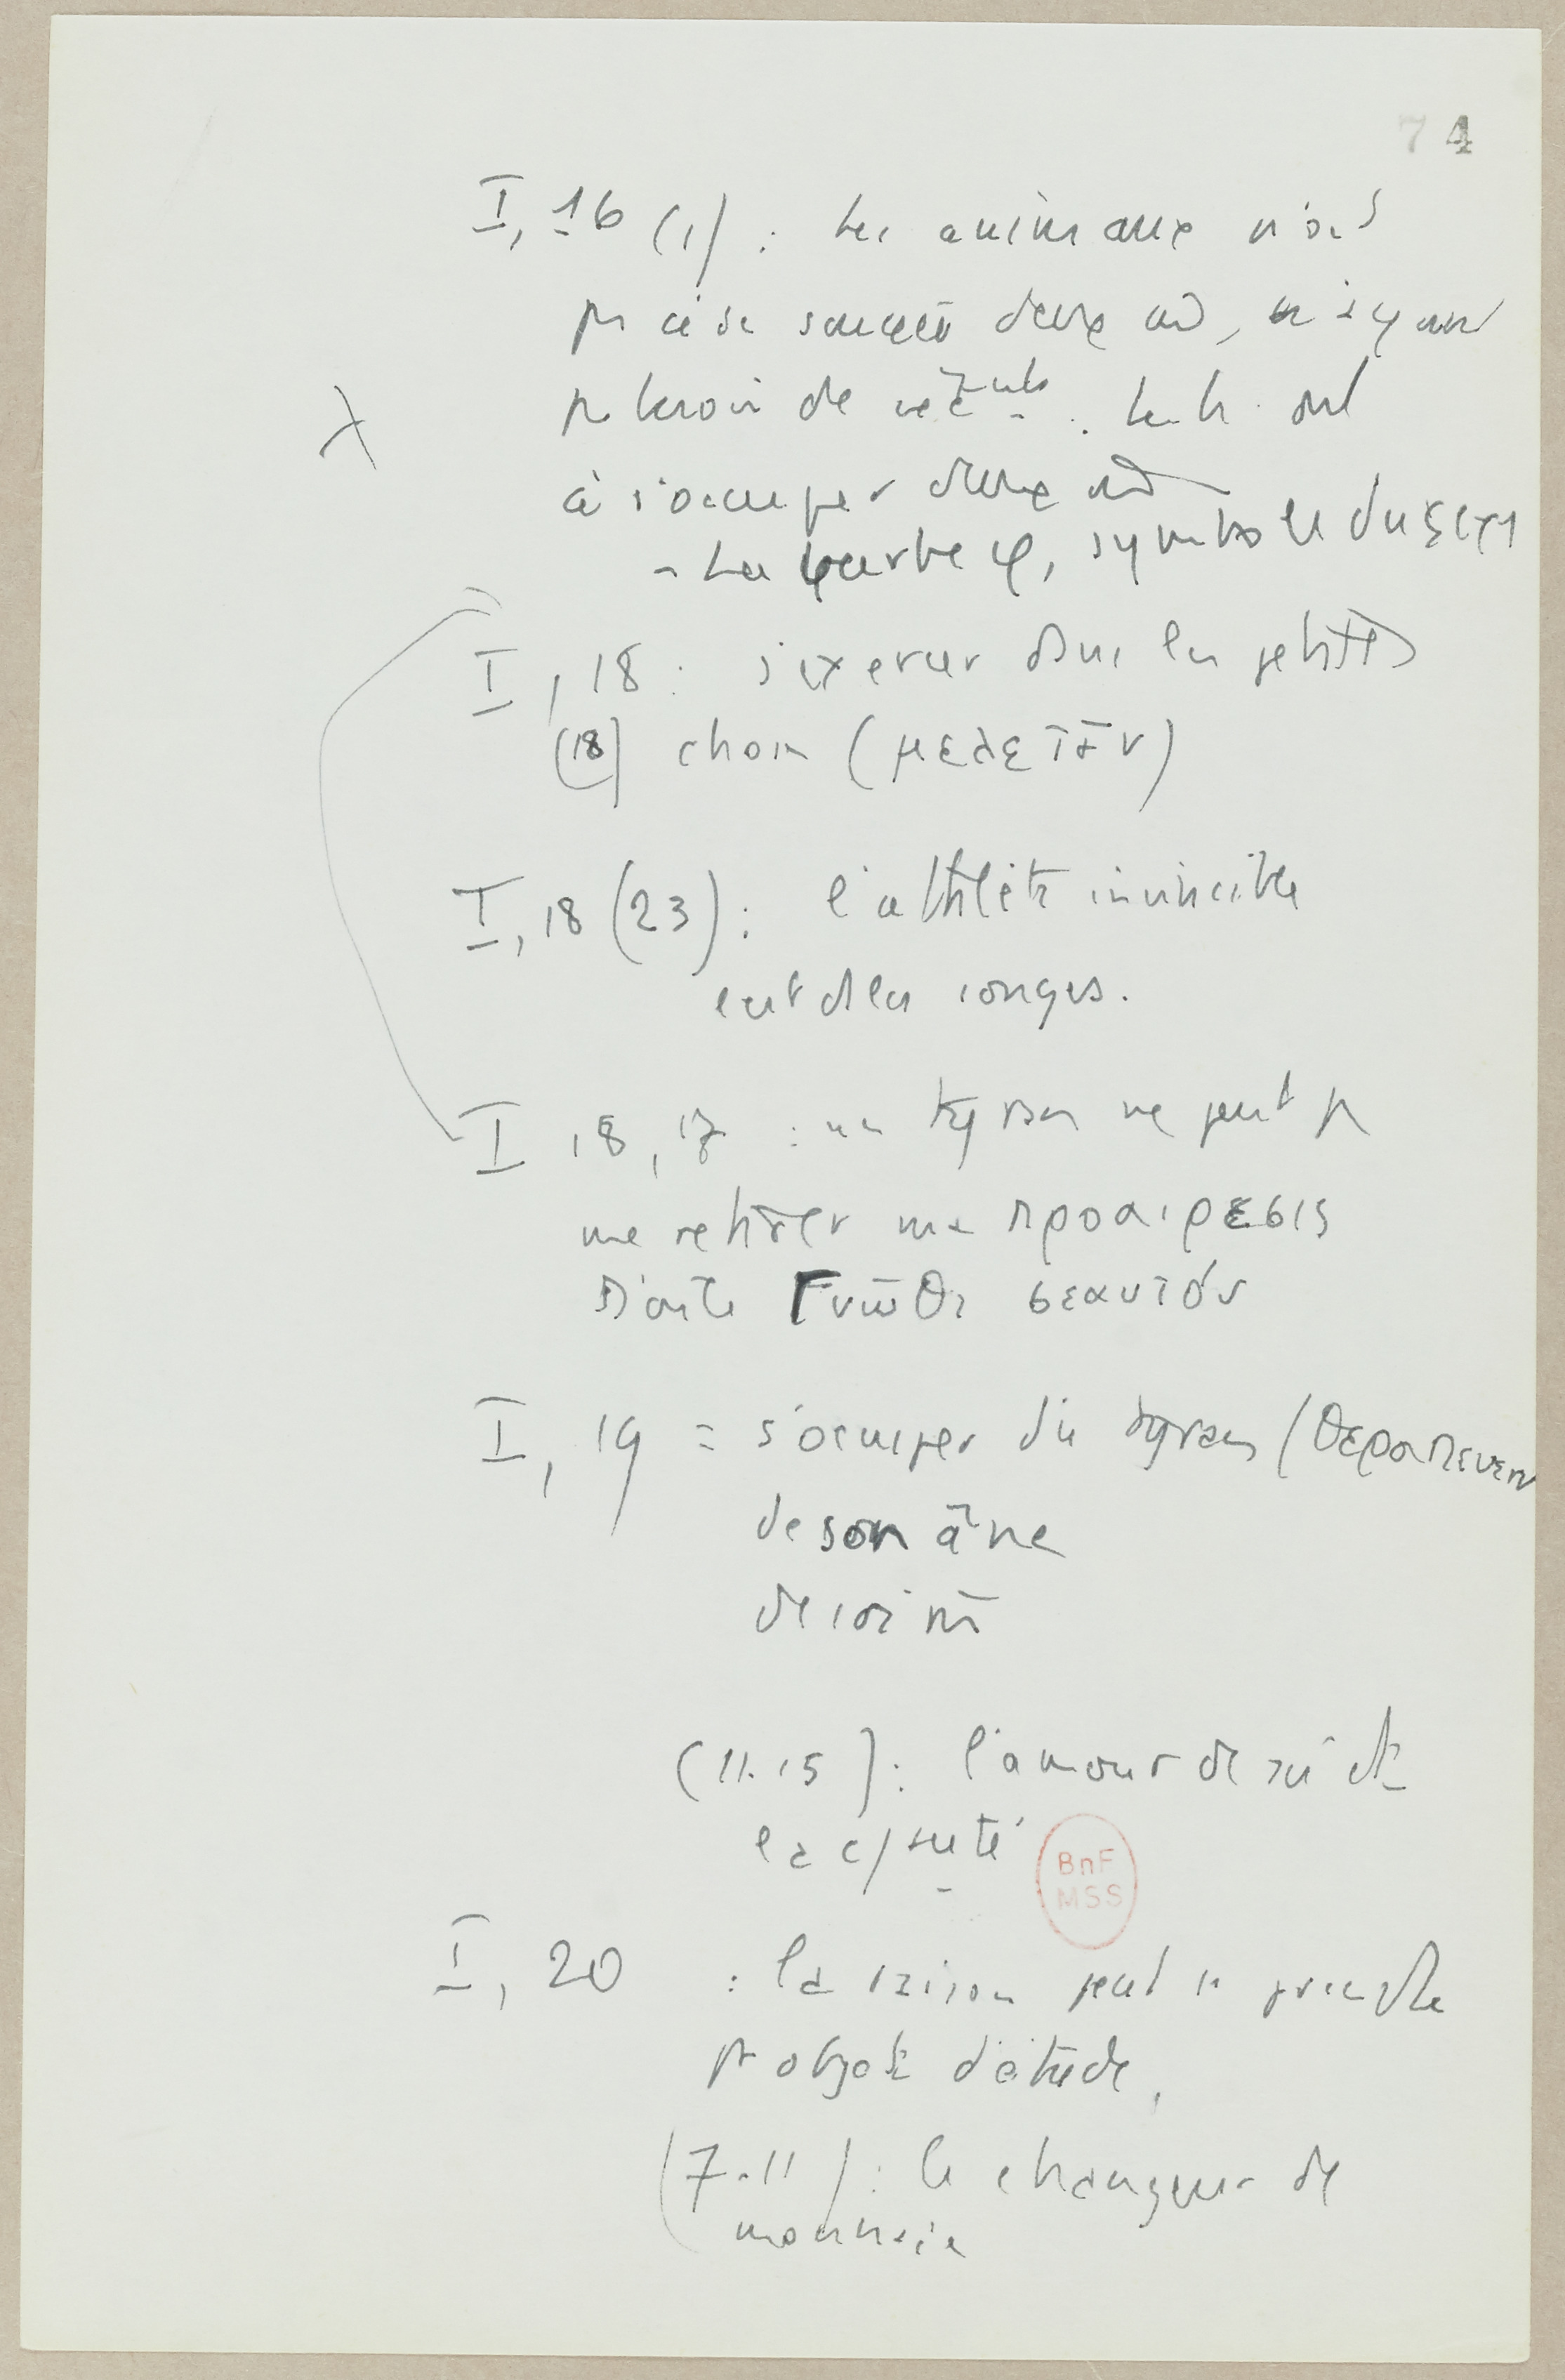 74
I, 16 (1) : Les animaux n'ont
pas à se soucier d'eux m̂, n'ayant
pas besoin de vêtemts. Les h. ont
à s'occuper d'eux m̂
- La barbe φ, symbole du
I, 18 : s'exercer dans les petites
(18) choses (μελετᾶν)
I, 18 (23) : l'athlète invincible
est dles songes.
I 18, 17 : un tyran ne peut pas
me retirer ma προαίρεσις
D'où le Γνῶθι σεαυτόν
I, 19 = s'occuper du tyran (θεραπευειν
de son âne
de soi m̂
(11.15) : l'amour de soi et
la c/auté
BnF
MSS
I, 20 : la raison peut se prendre
pr objet d'étude,
(7-11) : le changeur de
monnaie